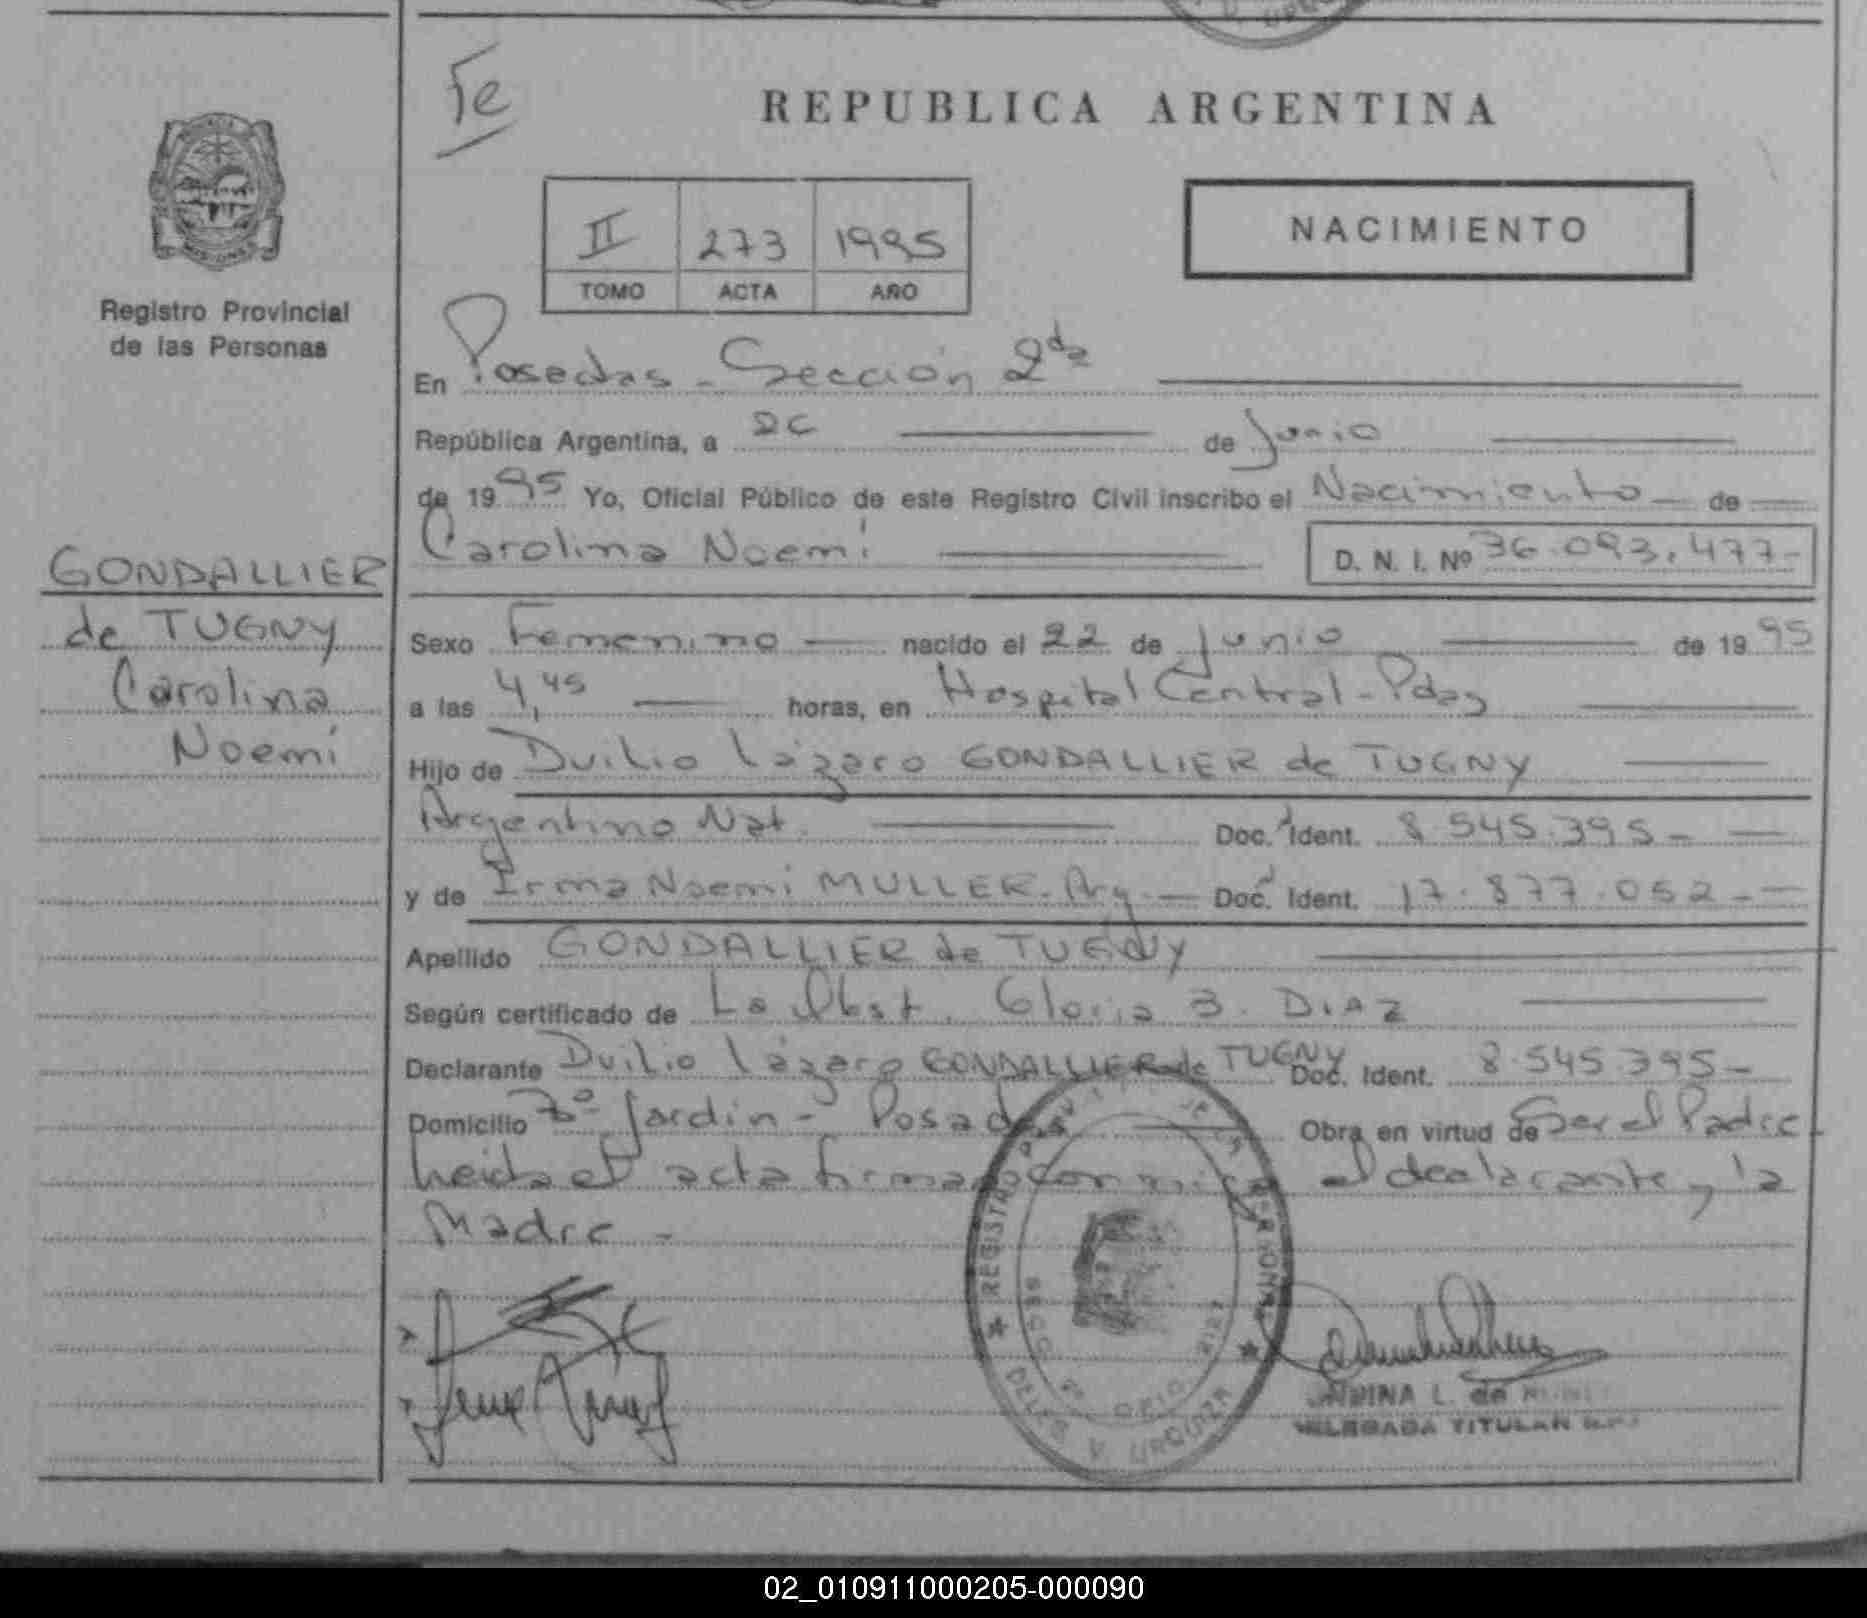 Te
REPUBLICA ARGENTINA
II 273 1995
TOMO ACTA AÑO
NACIMIENTO
Registro Provincial
de las Personas
GONDALLIER
de TUGNY
Carolina
Noemí
En Posadas - Sección 2da
República Argentina, a 26 de Junio
de 1995 Yo, Oficial Público de este Registro Civil inscribo el Nacimiento de
Carolina Noemí D. N. I. Nº 36.093.477-
Sexo Femenino nacido el 22 de Junio de 1995
a las 4,45 horas, en Hospital Central - Pdas
Hijo de Duilio Lázaro GONDALLIER de TUGNY
Argentino Nat. Doc. Ident. 8.545.395-
y de Irma Noemi MULLER - Arg. Doc. Ident. 17.877.052-
Apellido GONDALLIER de TUGNY
Según certificado de La Obst. Gloria B. DIAZ
Declarante Duilio Lázaro GONDALLIER de TUGNY Doc. Ident. 8.545.395-
Domicilio Bº Jardín - Posadas Obra en virtud de Ser el Padre
Leida el acta firman con migo el declarante y la
Madre -
REGISTRO PROV. DE LAS PERSONAS
DELEG
URQUIZA
L. de
DELEGADA TITULAR R.P.
02_010911000205-000090